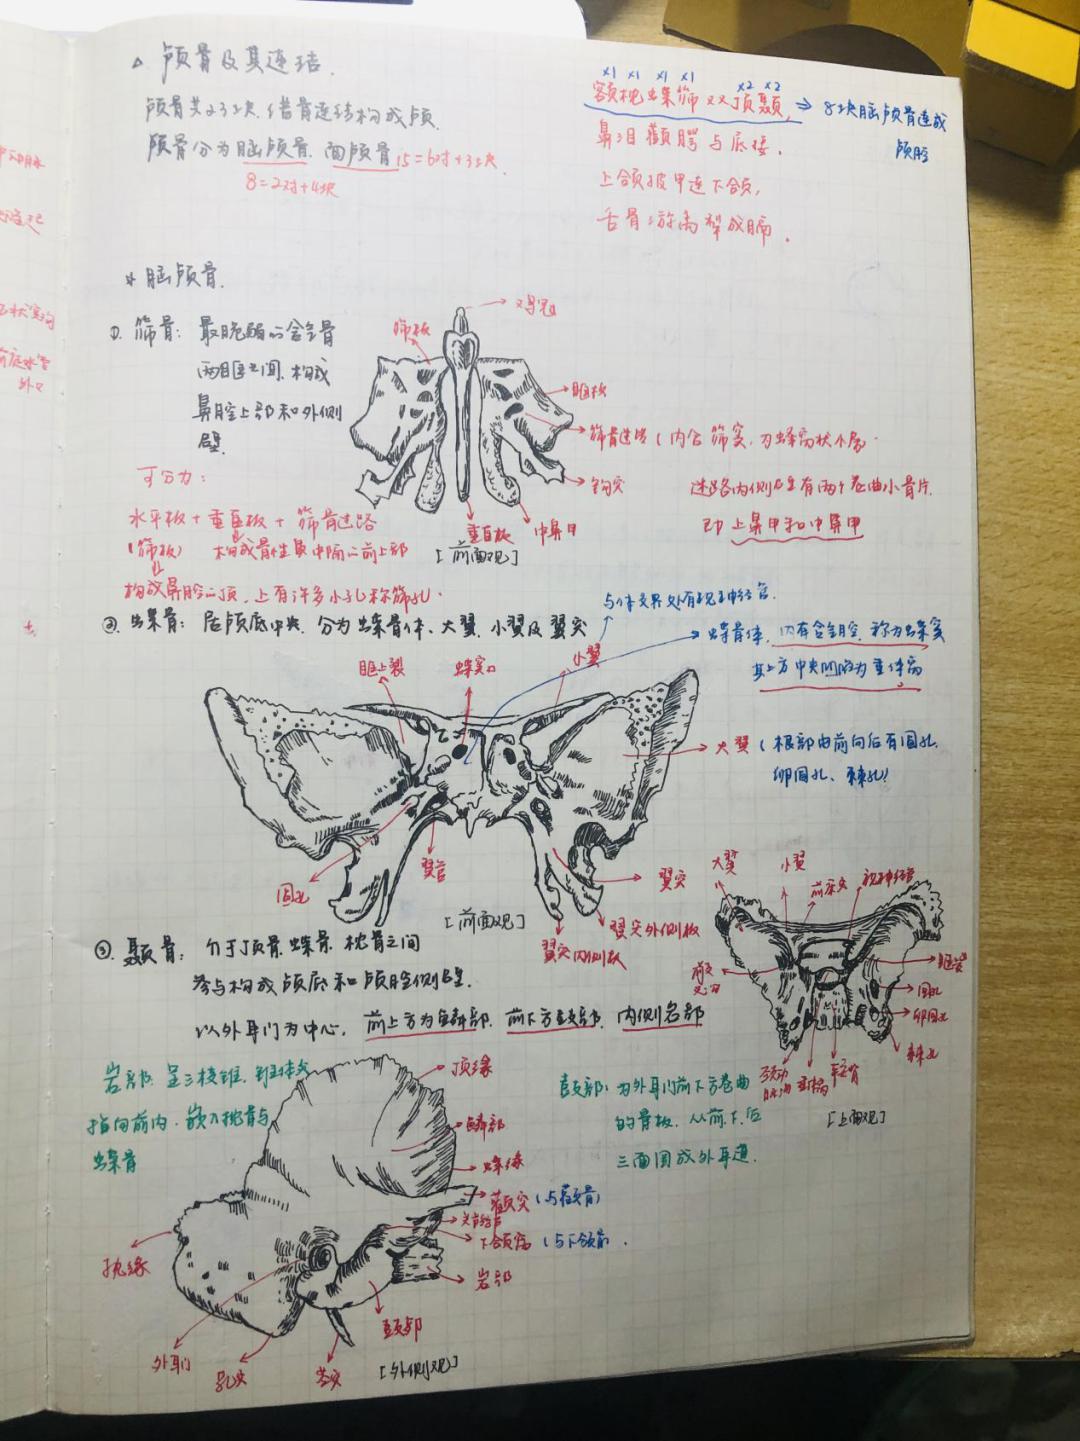 △ 颅骨及其连结.
颅骨共23块,借骨连结构成颅.
颅骨分为脑颅骨.面颅骨 15=6对+3块.
8=2对+4块
×1 ×1 ×1 ×1 ×2 ×2
额枕蝶筛双顶颞, → 8块脑颅骨连成
颅腔
鼻泪颧腭与底接.
上颌披甲连下颌,
舌骨游离犁成隔.
脑颅骨.
①. 筛骨: 最脆弱的含气骨
两眶之间.构成
鼻腔上部和外侧
壁.
鸡冠
筛板
眶板
筛骨迷路(内含筛窦.为蜂窝状小房.
钩突
中鼻甲
垂直板
[前面观]
迷路内侧壁有两个卷曲小骨片.
即上鼻甲和中鼻甲
可分为:
水平板+垂直板+筛骨迷路
(筛板) 构成骨性鼻中隔的前上部
构成鼻腔的顶,上有许多小孔称筛孔.
②. 蝶骨: 居颅底中央.分为蝶骨体、大翼.小翼及翼突
与体交界处有视神经管.
→ 蝶骨体.内有含气腔.称为蝶窦
其上方中央凹陷为垂体窝
眶上裂
蝶窦口
小翼
大翼(根部由前向后有圆孔.
卵圆孔、棘孔)
圆孔
翼管
翼突
翼突外侧板
翼突内侧板
[前面观]
大翼
小翼
前床突
视神经管
眶上裂
圆孔
卵圆孔
棘孔
颈动脉沟
垂体窝
鞍背
[上面观]
③. 颞骨: 介于顶骨.蝶骨.枕骨之间
参与构成颅底和颅腔侧壁.
以外耳门为中心. 前上方为鳞部.前下方鼓部.内侧岩部
岩部:呈三棱锥.锥体尖
指向前内.嵌入枕骨与
蝶骨
鼓部:为外耳门前下方卷曲
的骨板.从前.下.后
三面围成外耳道.
顶缘
鳞部
蝶缘
颧突(与颧骨)
关节结节
下颌窝(与下颌骨.
岩部
鼓部
枕缘
外耳门
乳突
茎突
[外侧观]